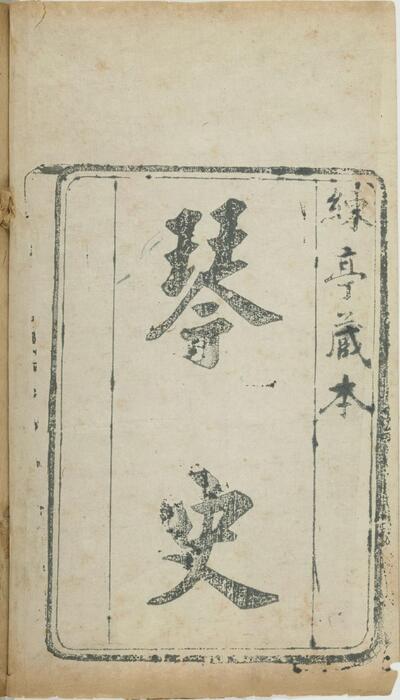 練亭藏本
琴史